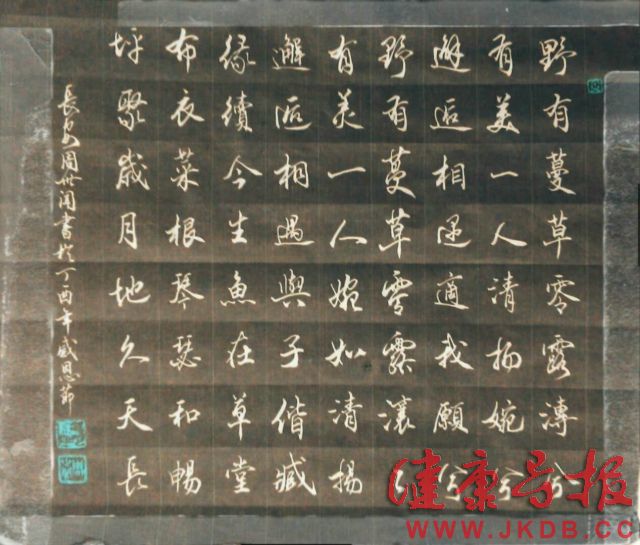 野有蔓草零露漙兮
有美一人清扬婉兮
邂逅相遇適我願兮
野有蔓草零露瀼
有美一人婉如清揚
邂逅相遇與子偕臧
緣續今生魚在草堂
布衣菜根琴瑟和暢
坪聚歲月地久天長
長安周世闻書於丁酉年感恩節
健康号报
WWW.JKDB.CC